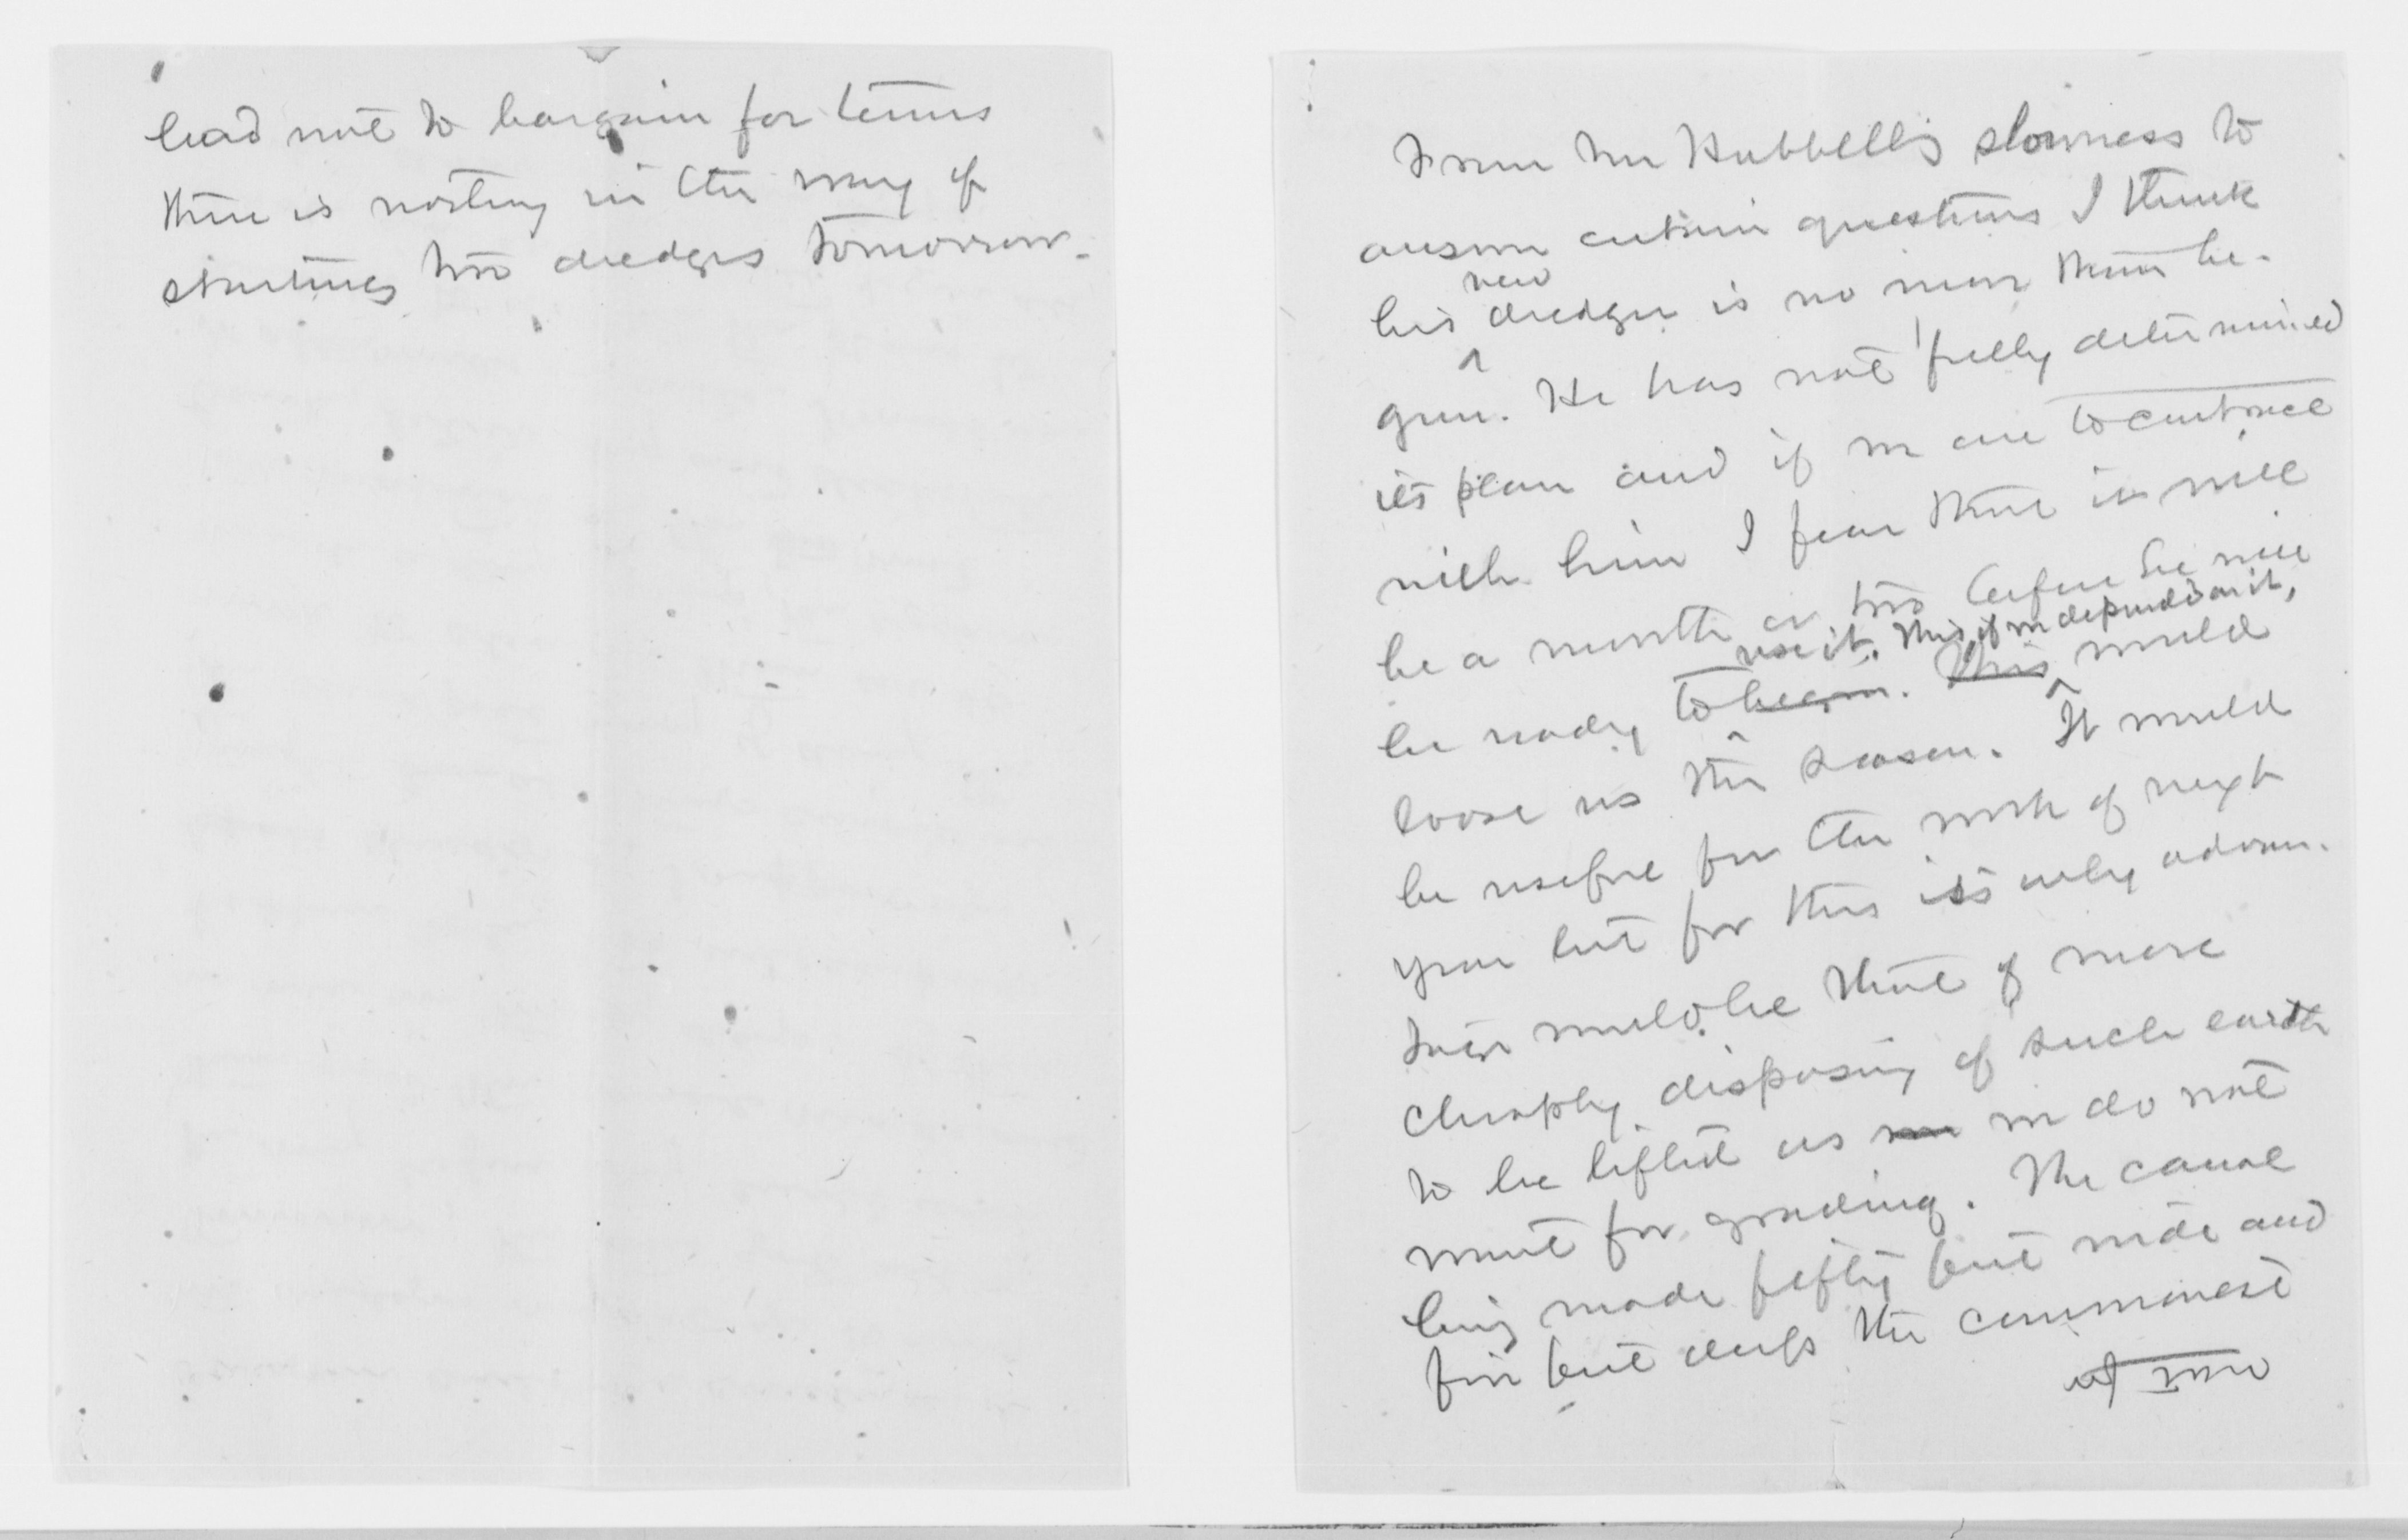 had not to bargain for terms
there is nothing in the way of
starting two dredges tomorrow.
From Mr Hubbell's slowness to
answer certain questions I think
his new dredger is no more than be-
gun. He has not fully determined
its plan and if we are to contract
with him I fear there it will
be a month or two before he will
be ready to begin. use it. This if we depended on it,
This would
loose us the season. It would
be useful for the work of next
year but for this its only advan-
tage would be that of more
cheaply disposing of such earth
to be lifted as we do not
want for grading. The canal
being made fifty feet wide and
five feet deep the commonest
of